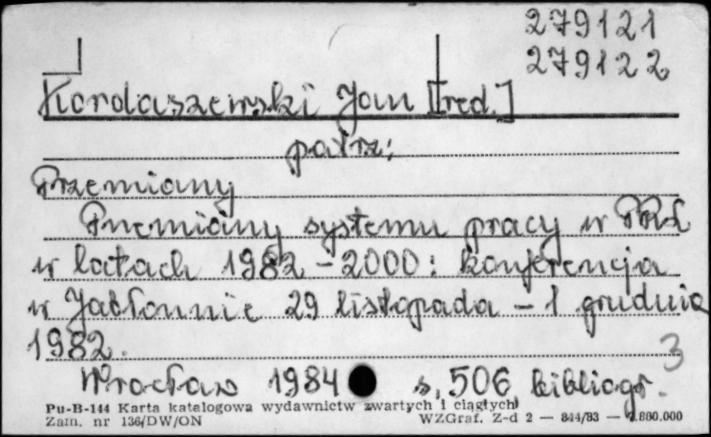 279121
279122
Kordaszewski Jan [red.]
patrz:
Przemiany
Przemiany systemu pracy w PRL
w latach 1982-2000: konferencja
w Jabłonnie 29 listopada - 1 grudnia
1982.
3
Wrocław 1984 s, 506 bibliogr.
Pu-B-144 Karta katalogowa wydawnictw zwartych i ciągłych
Zam. nr 136/DW/ON WZGraf. Z-d 2 — 844/83 — 2.880.000